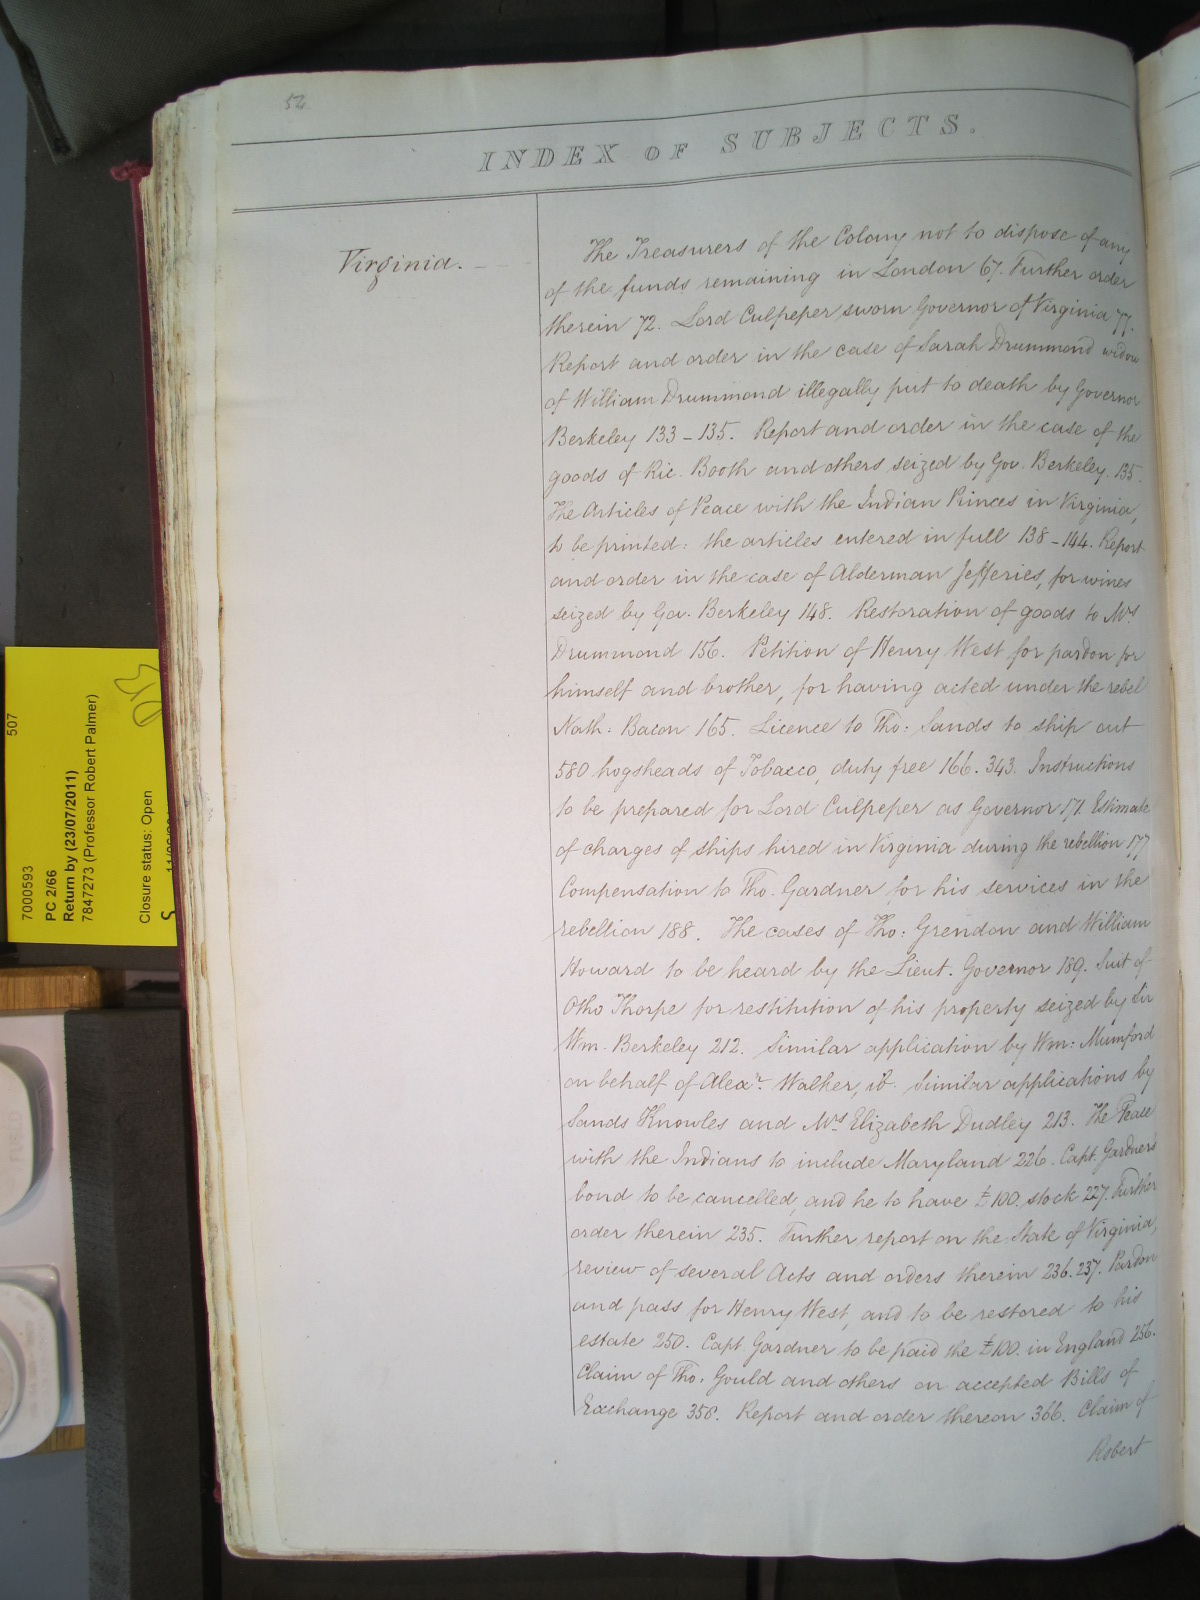 54
INDEX OF SUBJECTS.
Virginia.
The Treasurers of the Colony not to dispose of any
of the funds remaining in London 67. Further order
therein 72. Lord Culpeper sworn Governor of Virginia 77.
Report and order in the case of Sarah Drummond widow
of William Drummond illegally put to death by Governor
Berkeley 133-135. Report and order in the case of the
goods of Ric. Booth and others seized by Gov. Berkeley. 135.
The Articles of Peace with the Indian Princes in Virginia,
to be printed: the articles entered in full 138-144. Report
and order in the case of Alderman Jefferies, for wines
seized by Gov. Berkeley 148. Restoration of goods to Mrs
Drummond 156. Petition of Henry West for pardon for
himself and brother, for having acted under the rebel
Nath: Bacon 165. Licence to Tho: Sands to ship out
580 hogsheads of Tobacco, duty free 166. 343. Instructions
to be prepared for Lord Culpeper as Governor 171. Estimate
of charges of ships hired in Virginia during the rebellion 177
Compensation to Tho. Gardner for his services in the
rebellion 188. The cases of Tho: Grendon and William
Howard to be heard by the Lieut. Governor 189. Suit of
Otho Thorpe for restitution of his property seized by Sir
Wm. Berkeley 212. Similar application by Wm: Mumford
on behalf of Alexr. Walker, ib. Similar applications by
Sands Knowles and Mrs Elizabeth Dudley 213. The Peace
with the Indians to include Maryland 226. Capt. Gardner's
bond to be cancelled, and he to have £100. stock 227. Further
order therein 235. Further report on the State of Virginia,
review of several Acts and orders therein 236.237. Pardon
and pass for Henry West, and to be restored to his
estate 250. Capt. Gardner to be paid the £100. in England 256.
Claim of Tho. Gould and others on accepted Bills of
Exchange 358. Report and order thereon 366. Claim of
Robert
507
7000593
PC 2/66
Return by (23/07/2011)
7847273 (Professor Robert Palmer)
Closure status: Open